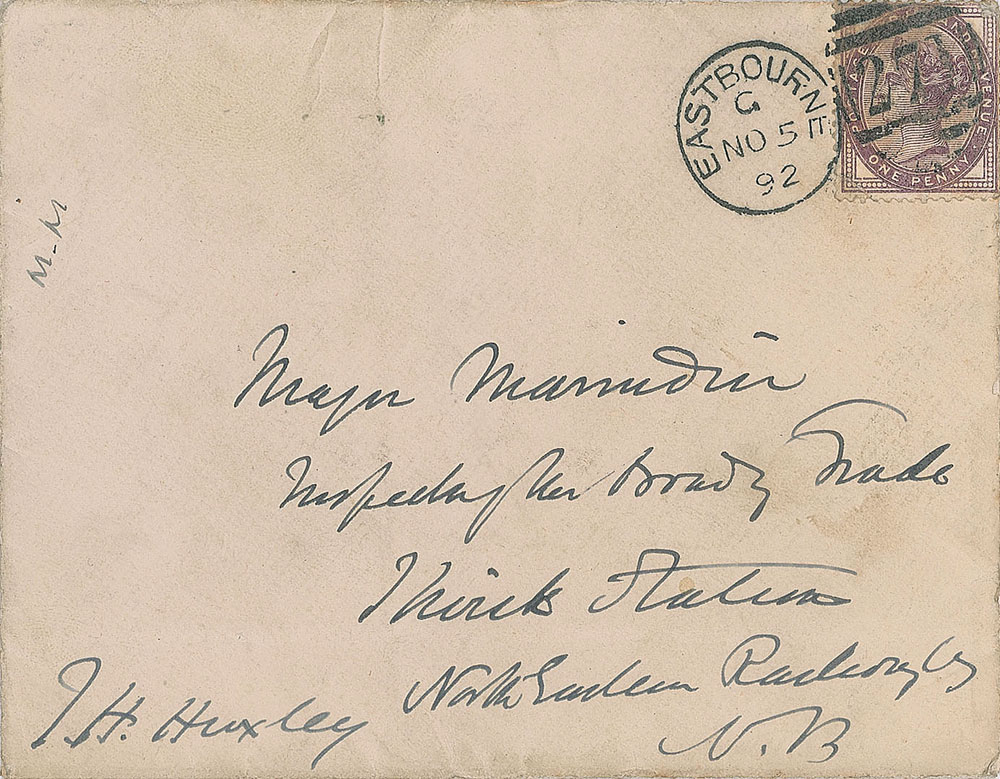 EASTBOURNE
G
NO 5
92
27
REVENUE
ONE PENNY
Major Marindin
Inspector for the Board of Trade
Thirsk Station
North Eastern Railway
N.B
T. H. Huxley